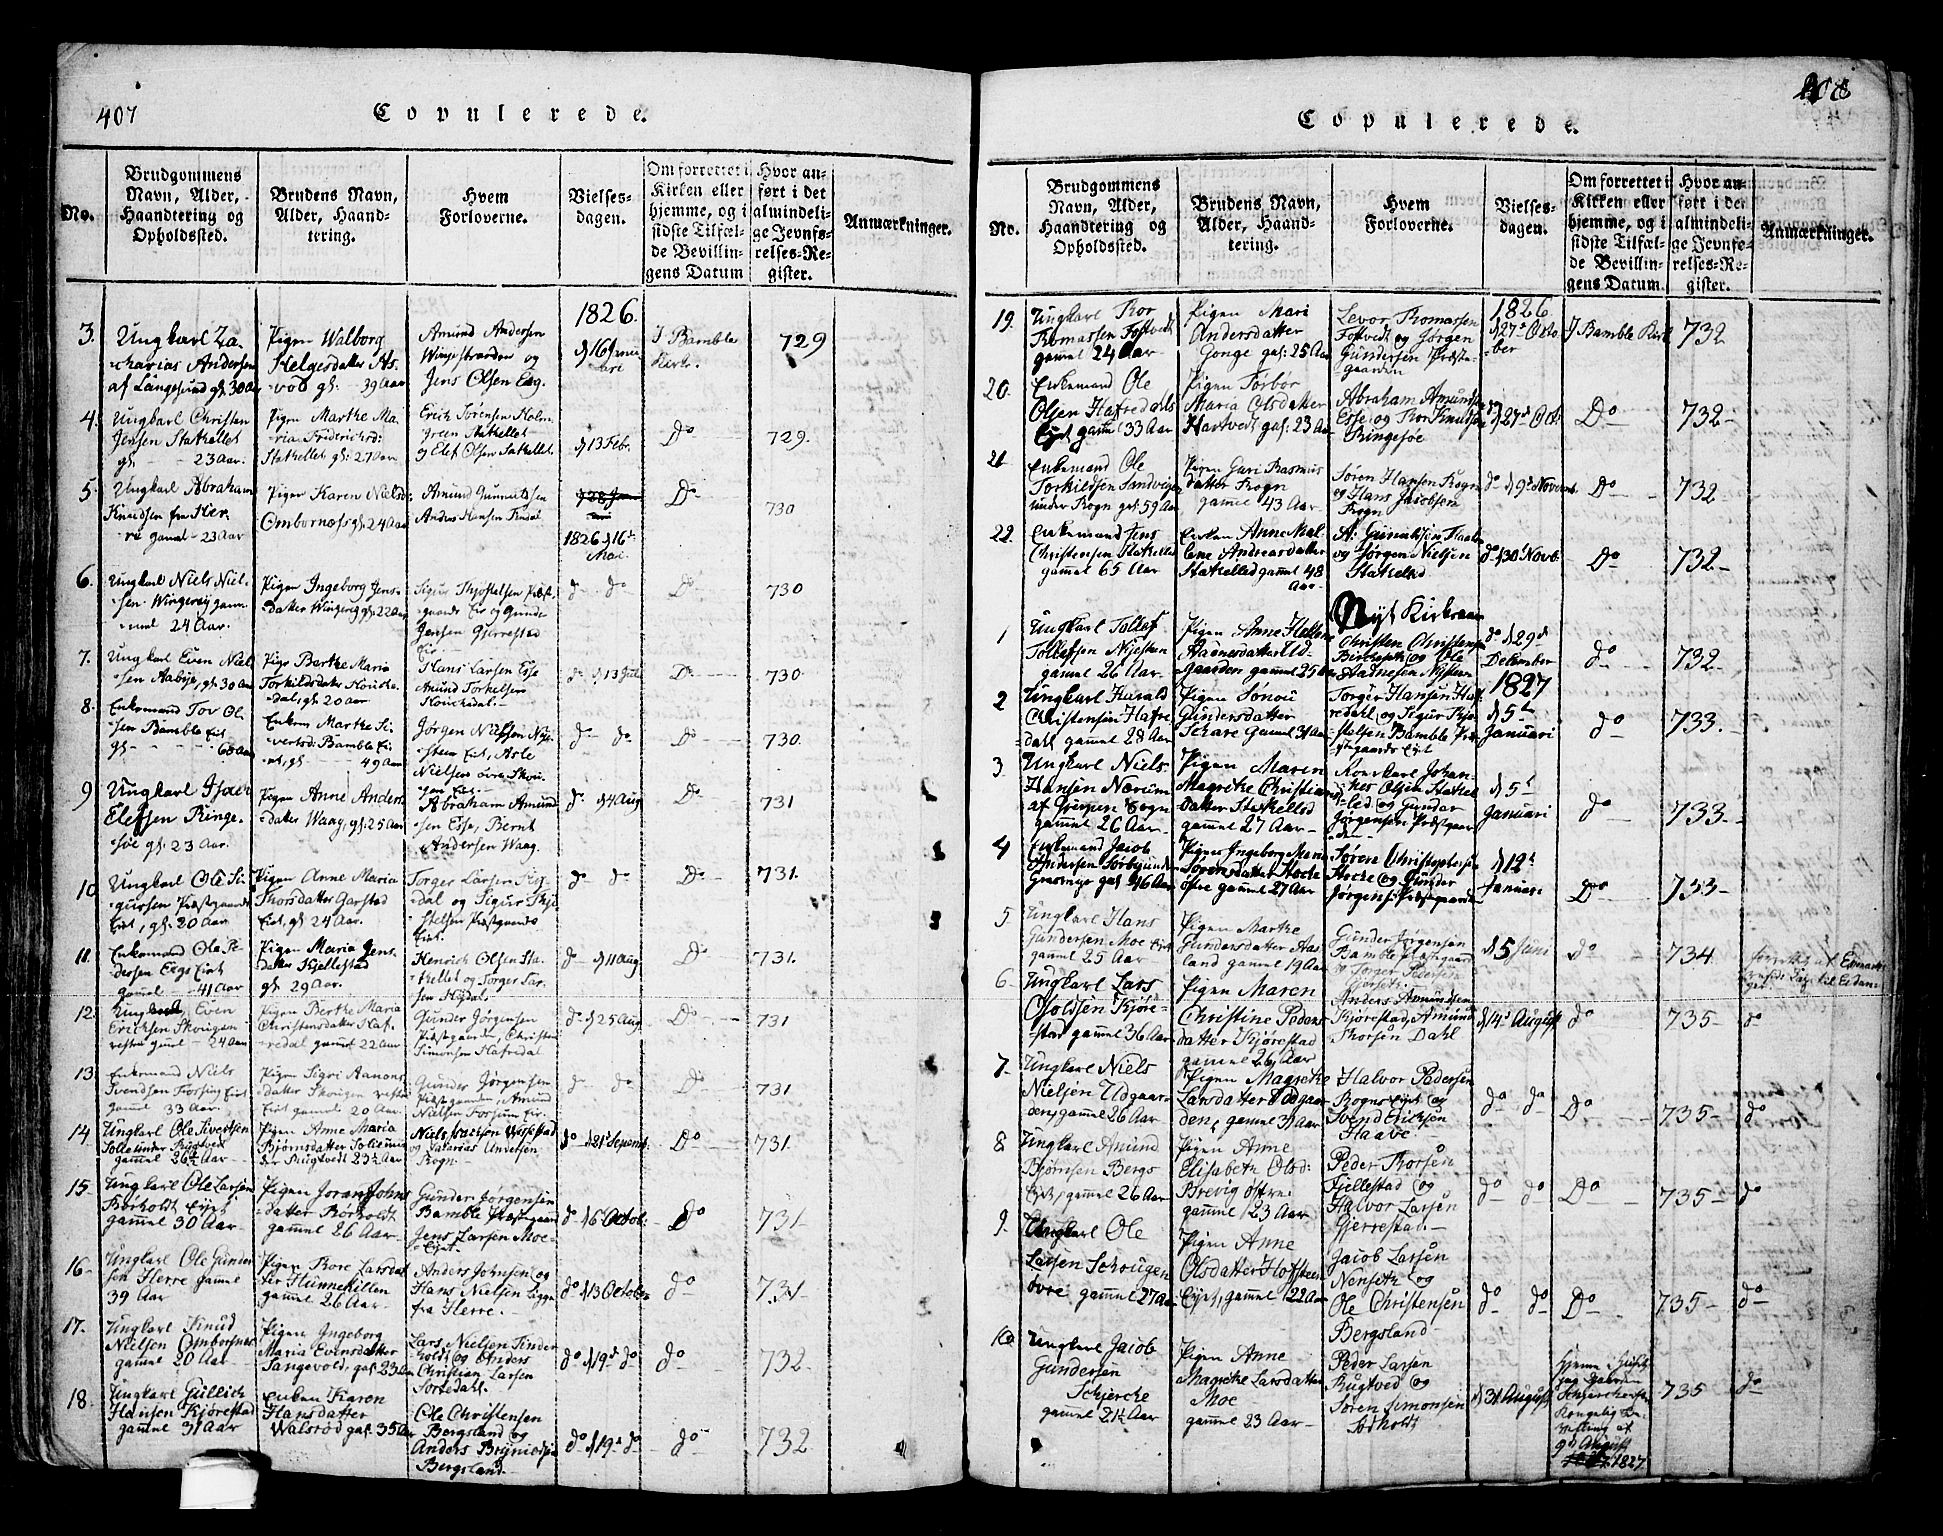 407
Copulerede.
No.
Brudgommens
Navn, Alder,
Haandtering og
Opholdssted.
Brudens Navn,
Alder, Haand-
tering.
Hvem
Forloverne.
Vielses-
dagen.
Om forrettet i
Kirken eller
hjemme, og i
sidste Tilfæl-
de Bevillin-
gens Datum
Hvor an-
ført i det
almindeli-
ge Jevnfø-
relses-Re-
gister.
Anmærkninger.
1826.
3.
Ungkarl Za-
charias Andersen
af Langesund gl. 30 Aar
Pigen Walborg
Helgesdatter As-
vod gl. 39 Aar
Amund Andersen
Wingestranden og
Jens Olsen Eeg.
d 16 Janu-
ari
I Bamble
Kirke.
729
4.
Ungkarl Christen
Jensen Stathellet
gl. - - 23 Aar.
Pigen Marthe Ma-
ria Fridrichsd:
Stathellet gl: 27 Aar.
Erich Sørensen Holm-
green Stathellet
og Elef Olsen Stathellet.
d 13 Febr.
Do
729.
5.
Ungkarl Abraham
Knudsen fra Her-
re gamel - 23 Aar
Pigen Karen Nielsd:
Ombornæs gl. 24 Aar
Amund Gunnildsen
Anders Hansen Findal
1826 d 16de
Mai
Do
730
6.
Ungkarl Niels Niel-
sen Wingereig gam-
mel 24 Aar.
Pigen Ingeborg Jens-
datter Wingereig gl. 22 Aar
Sigur Thjostelsen Præst-
gaards Eie og Gunde
Jensen Gjerrestad
do do
Do
730
7.
Ungkarl Even Niel-
sen Aabye, gl. 30 Aar
Pige Berthe Maria
Torkildsdatter Houke-
dal, gl. 20 aar
Hans Larsen Esse
Amund Torkelsen
Houckedal.
do d 13 Juli
Do
730.
8.
Enkemand Tov Ol-
sen Bamble Eiet
gl. - - 60 Aar
Enken Marthe Si-
vertsd: Bamble Ei-
et, gl. - 49 Aar
Jørgen Nielsen Nye-
steen Eiet, Asle
Nielsen øvre Skou-
gen Eie.
do do
Do
730.
9.
Ungkarl Isaac
Elefsen Ringe-
søe gl. 23 Aar.
Pigen Anne Anders-
datter Waag, gl. 25 Aar
Abraham Amund-
sen Esse, Bernt
Andersen Waag.
do d 4 Aug
Do
731
10.
Ungkarl Ole Si-
gursen Præstgaards
Eiet, gl. 20 Aar
Pigen Anne Maria
Thorsdatter Garstad
Eiet gl. 24 Aar.
Torger Larsen Fig-
dal og Sigur Thjo-
stelsen Præstgaards
Eiet.
do do
Do
731.
11.
Enkemand Ole Pe-
dersen Eegs Eiet
gamel - 41 Aar
Pigen Maria Jens-
datter Kjellestad
gl. 29 Aar.
Henrich Olsen Sta-
thellet og Torger Lar-
sen Hejdal.
do d 11 Aug
Do
731.
12.
Even
Erichsen Skougen
vestre gamel - 24 Aar
Pigen Berthe Maria
Christensdatter Haf-
redal gamel 22 Aar
Gunder Jørgensen
Præstgaarde, Christen
Simonsen Hafredal
do d 25 Aug
Do
731
13.
Enkemand Niels
Svendsen Fossing Eiet
gamel 33 Aar.
Pigen Sigri Aanons-
datter Skougen vestre
Eiet gamel 20 Aar.
Gunder Jørgensen
Præstgaarden, Amund
Nielsen Fossum Eie
do do
Do
731
14.
Ungkarl Ole Sivertsen
Tolleunder Rugtved
gamel 26½ Aar
Pigen Anne Maria
Bjørnsdatter
Rugtvedt 23½ Aar
Niels Isachsen
og Zacharias Andersen
Rogn.
do d 21 Septemb.
Do
731.
15.
Ungkarl Ole Larsen
Borholdt Eyet
gamel 30 Aar
Pigen Joran Johns-
datter Borholdt
gamel 26 Aar.
Gunder Jørgensen
Bamble Præstegaard
Jens Larsen Moe-
Eyet.
do d 6 Octob.
Do
731
16.
Ungkarl Ole Gunder-
sen Herre gamel
39 Aar
Pigen Thore Larsdat-
ter Hunnekillen
gamel 26 Aar.
Anders Johnsen og
Hans Nielsen Ligge
fra Herre.
do d 13 Octob.
do
731
17.
Ungkarl Knud
Nielsen Ombornes
gamel 20 Aar
Pigen Ingeborg
Maria Evensdatter
Tangevold, gal. 23 Aar
Lars Nielsen Tinder-
holdt og Anders
Christian Larsen
Sortedahl.
do d 19de do
do
732.
18.
Ungkarl Gullich
Hansen Kjørestad
gamel 31 Aar
Enken Karen
Hansdatter
Walsrød gal. 35 Aar
Ole Christensen
Bergsland og
Anders Brynildsen
Bergsland.
do d 19de do
do
732.
408
Copulerede.
No.
Brudgommens
Navn, Alder,
Haandtering og
Opholdssted.
Brudens Navn,
Alder, Haand-
tering.
Hvem
Forloverne.
Vielses-
dagen.
Om forrettet i
Kirken eller
hjemme, og i
sidste Tilfæl-
de Bevillin-
gens Datum.
Hvor an-
ført i det
almindeli-
ge Jevnfø-
relses-Re-
gister.
Anmærkninger.
19.
Ungkarl Thor
Thomassen Fostvedt
gamel 24 Aar
Pigen Mari
Andersdatter
Gonge gal: 25 Aar
Levor Thomassen
Fostvedt og Jørgen
Gundersen Præste-
gaarden
1826
d 27de Octo-
ber
I Bamble Kirk
732
20.
Enkemand Ole
Olsen Hafredals
Eyet gamel 33 Aar
Pigen Torbor
Maria Olsdatter
Hartvedt gal: 23 Aar
Abraham Amundsen
Esse og Thor Knudsen
Ringesøe
d 27de Oct.
Do
732
21
Enkemand Ole
Torkildsen Sandvigen
under Rogn gal: 59 Aar
Pigen Guri Rasmus-
datter Rogn
gamel 43 Aar
Søren Hansen Rogn
og Hans Jacobsen
Rogn
do d 9de Novemb.
Do
732
22.
Enkemand Jens
Christensen Stathelled
gamel 65 Aar
Enken Anne Mal-
lene Andreasdatter
Stathelled gamel 48
Aar
A: Gunnildsen
og Jørgen Nielsen
Stathelled
do d 30 Novb.
Do
732
Nyt Kirkeaar
1
Ungkarl Tollef
Tollefsen Nysteen
gamel 26 Aar
Pigen Anne Helene
Hadnesdatter Uld-
gaarden gamel 25 Aar
Christen Christensen
og Ole
Hadnesen Nysteen
do d 29de
December
do
732
1827
2
Ungkarl Harald
Christensen Hafre-
dahl gamel 28 Aar
Pigen
Gundersdatter
Schare gamel 31 Aar
Torger Hansen Haf-
redahl og Sigur Thjo-
stelsen Bamble Præ-
stgaards Eiet
d 5te
Januari
do
733.
3
Ungkarl Niels
Hansen Nærum
af Gjerpen Sogn
gamel 26 Aar
Pigen Maren
Magrethe Christians-
datter Stathelled
gamel 27 Aar
Johan-
nes Olsen Stathel-
led og Gunder
Jørgensen Præstgaar-
den
d 5te
Januari
do
733.
4
Enkemand Jacob
Andersen
gal. 46 Aar
Pigen Ingeborg Maria
Sørensdatter Stocke
øvre gamel 27 Aar
Søren Christophersen
Stocke og Gunder
Jørgensen Præstgaarde
d 12te
Januari
Do
733
5
Ungkarl Hans
Gundersen Moe Eiet
gamel 25 Aar
Pigen Marthe
Gundersdatter Aas-
land gamel 19 Aar
Gunder Jørgensen
Bamble Præstgaard
og Torger Pedersen
d 5 Juni
do
734
6
Ungkarl Lars
Osoldsen Kjøre-
stad gamel 36 Aar
Pigen Maren
Christine Peders-
datter Kjørestad
gamel 26 Aar
Anders Amundsen
Kjørestad, Amund
Thorsen Dahl
d 14de August
do
735
do
7
Ungkarl Niels
Nielsen Uldgaar-
den, gamel 26 Aar
Pigen Magrethe
Larsdatter Uldgaar-
den, gamel 31 Aar
Halvor Pedersen
Rogns Eiet og
Svend Erichsen
Haave.
do do
Do
735
do
8
Ungkarl Amund
Bjørnsen Bergs
Eiet, gamel 26 Aar
Pigen Anne
Elisabeth Olsd:
Brevig østre
gamel 23 Aar
Peder Thorsen
Fjellestad og
Halvor Larsen
Gjerrestad.
do do
Do
735
do
9.
Ungkarl Ole
Larsen Schougen
øvre gamel 27 Aar
Pigen Anne
Olsdatter Hofsteen
Eiet, gamel 22 Aar
Jacob Larsen
Nenseth og
Ole Christensen
Bergsland
do do
Do
735
do
10
Ungkarl Jacob
Gundersen
Schjerche
gamel 21½ Aar
Pigen Anne
Magrethe Larsdatter
Moe
gamel 23 Aar
Peder Larsen
Rugtved og
Søren Simonsen
Todholdt
d 31 August
Kongelig Be-
villing af
9de August
1827
735
do